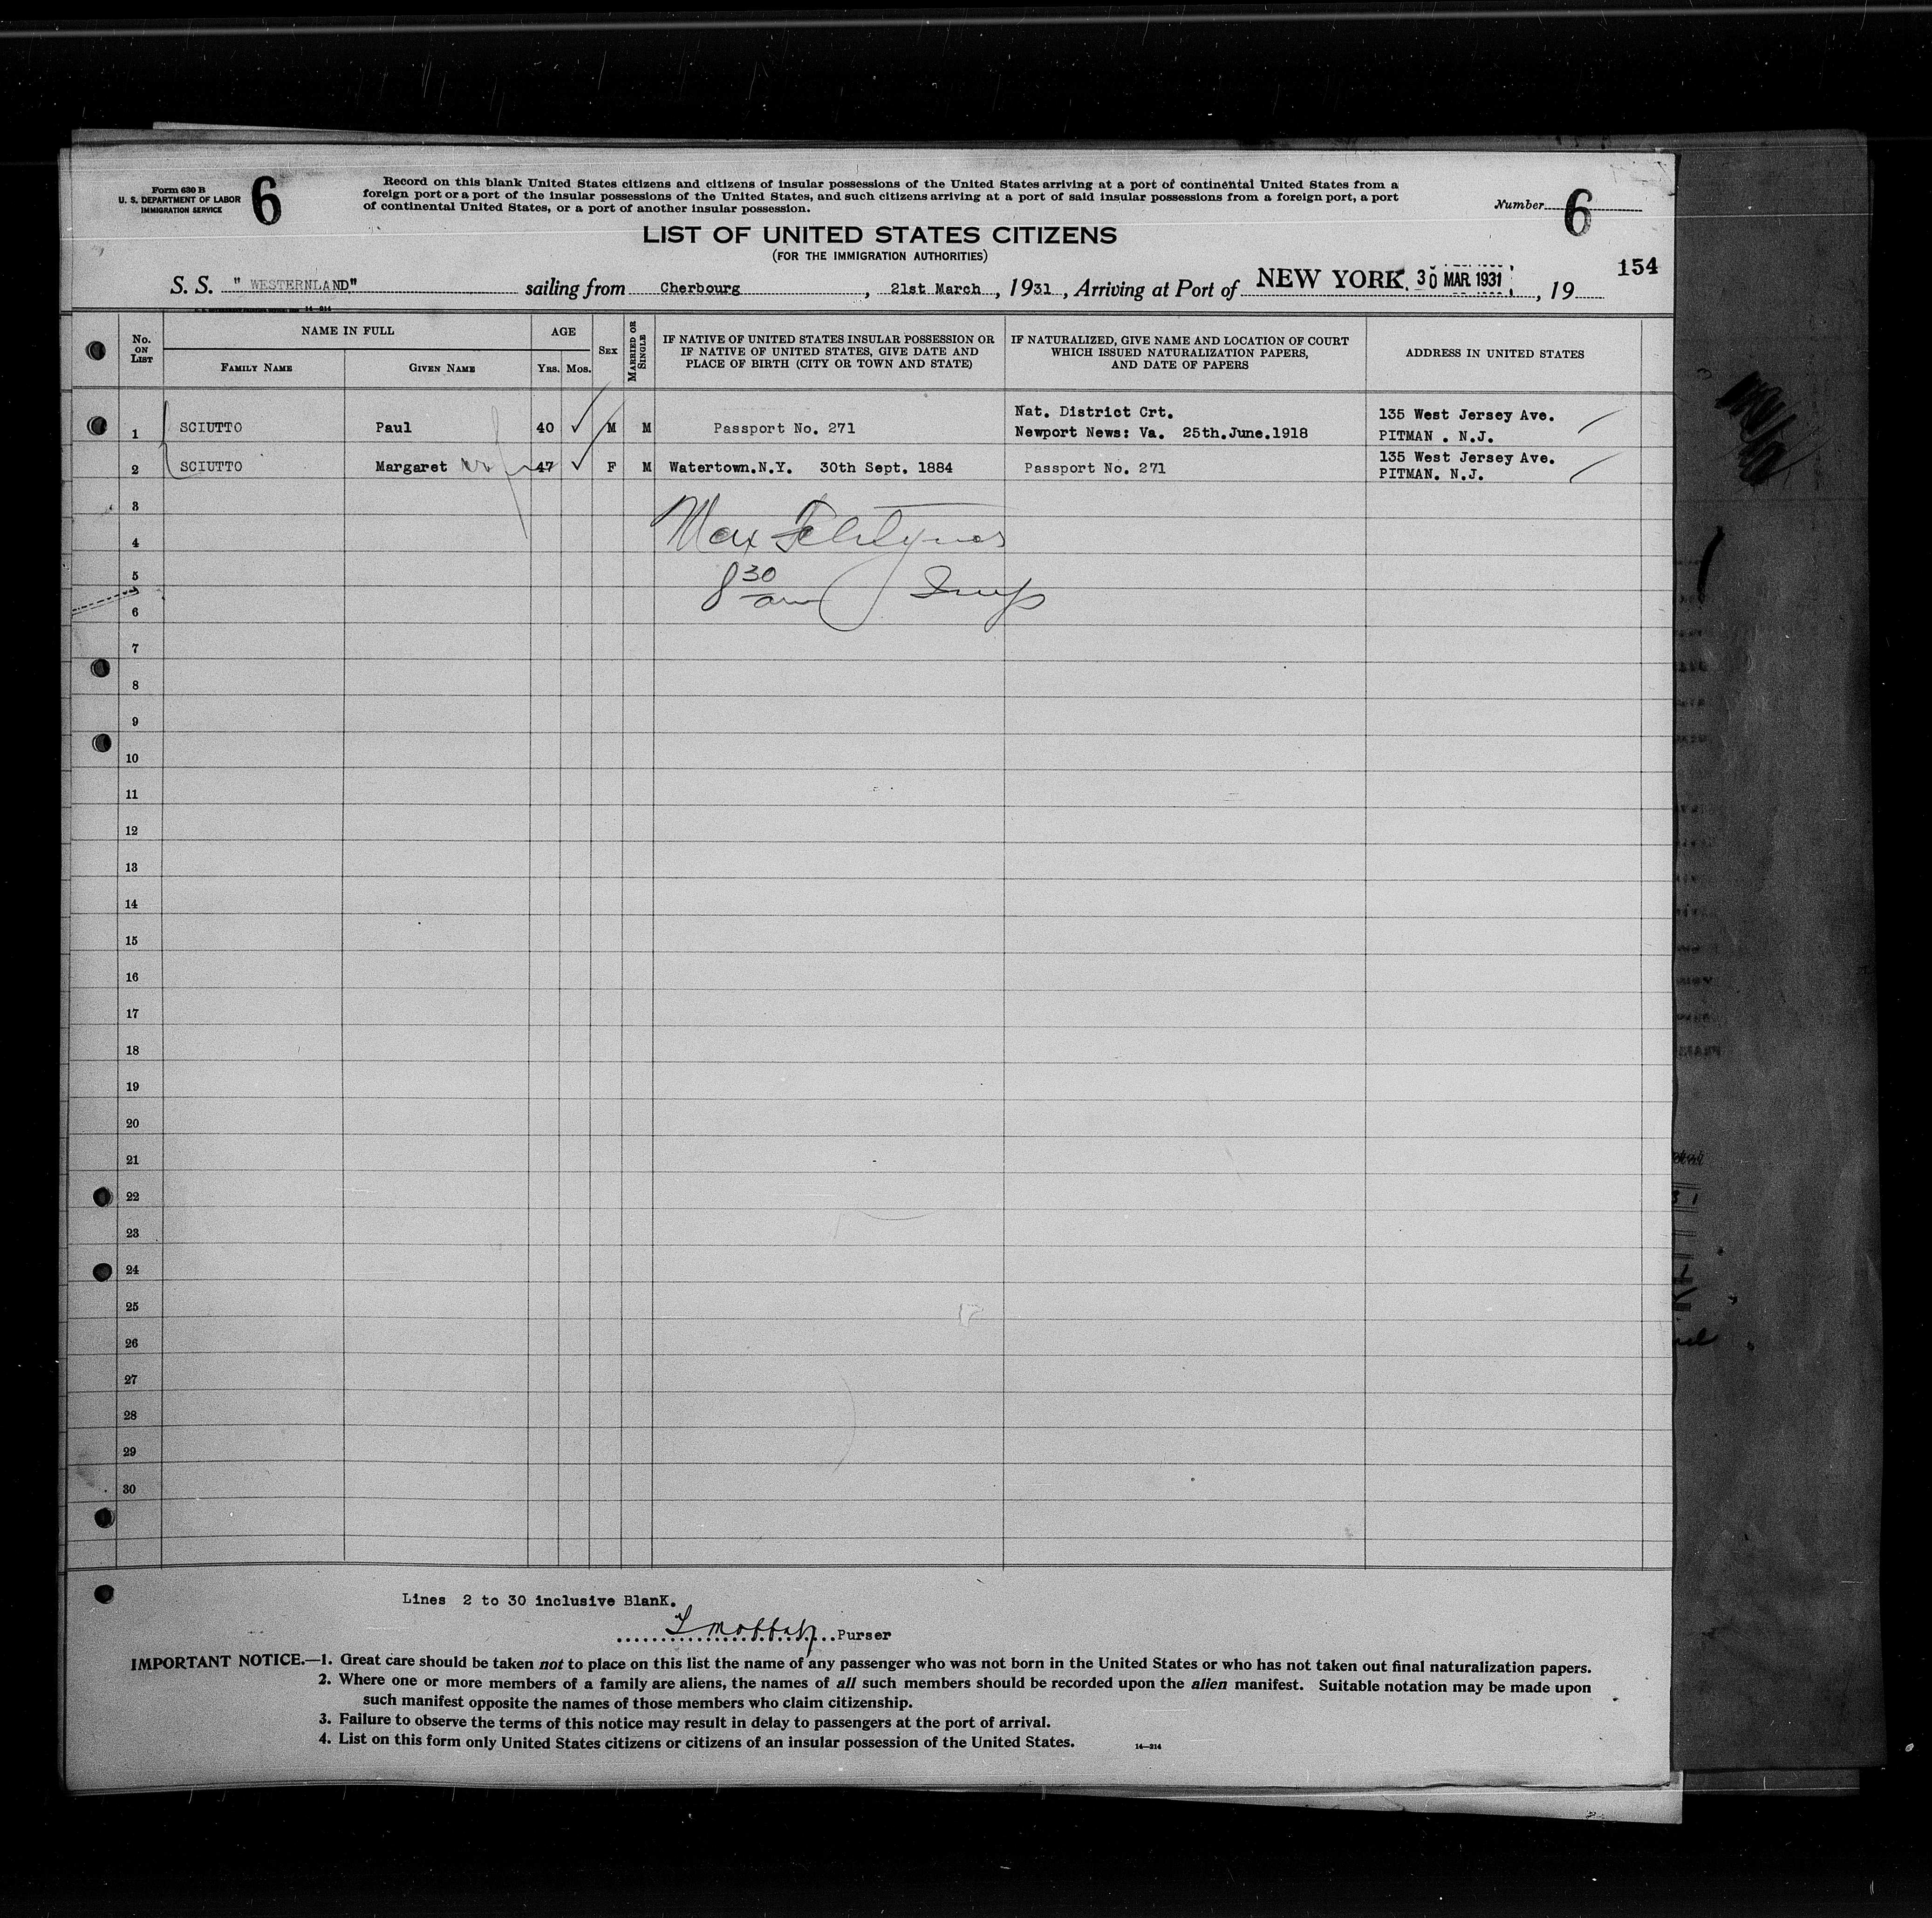 Form 630 B
U. S. DEPARTMENT OF LABOR
IMMIGRATION SERVICE
6
Record on this blank United States citizens and citizens of insular possessions of the United States arriving at a port of continental United States from a
foreign port or a port of the insular possessions of the United States, and such citizens arriving at a port of said insular possessions from a foreign port, a port
of continental United States, or a port of another insular possession.
Number 6
LIST OF UNITED STATES CITIZENS
(FOR THE IMMIGRATION AUTHORITIES)
154
S. S. " WESTERNLAND" sailing from Cherbourg, 21st March, 1931, Arriving at Port of NEW YORK. 30 MAR 1931, 19
No. ON LIST
NAME IN FULL
FAMILY NAME GIVEN NAME
AGE
YRS. MOS.
SEX
MARRIED OR SINGLE
IF NATIVE OF UNITED STATES INSULAR POSSESSION OR
IF NATIVE OF UNITED STATES, GIVE DATE AND
PLACE OF BIRTH (CITY OR TOWN AND STATE)
IF NATURALIZED, GIVE NAME AND LOCATION OF COURT
WHICH ISSUED NATURALIZATION PAPERS,
AND DATE OF PAPERS
ADDRESS IN UNITED STATES
1 SCIUTTO Paul 40 ✓ M M Passport No. 271 Nat. District Crt.
Newport News: Va. 25th.June.1918 135 West Jersey Ave.
PITMAN . N.J.
2 SCIUTTO Margaret 47 ✓ F M Watertown.N.Y. 30th Sept. 1884 Passport No. 271 135 West Jersey Ave.
PITMAN. N.J.
3
4 Max
5 8 30 am
6
7
8
9
10
11
12
13
14
15
16
17
18
19
20
21
22
23
24
25
26
27
28
29
30
Lines 2 to 30 inclusive BlanK.
Purser
IMPORTANT NOTICE.—1. Great care should be taken not to place on this list the name of any passenger who was not born in the United States or who has not taken out final naturalization papers.
2. Where one or more members of a family are aliens, the names of all such members should be recorded upon the alien manifest. Suitable notation may be made upon
such manifest opposite the names of those members who claim citizenship.
3. Failure to observe the terms of this notice may result in delay to passengers at the port of arrival.
4. List on this form only United States citizens or citizens of an insular possession of the United States.
14—214